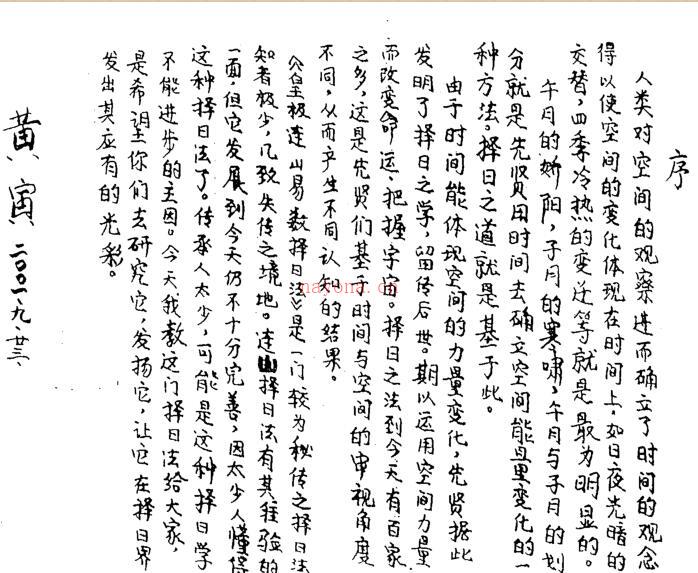 序
人类对空间的观察进而确立了时间的观念
得以使空间的变化体现在时间上。如日夜光暗的
交替，四季冷热的变迁等就是最为明显的。
午月的娇阳，子月的寒啸，午月与子月的划
分就是先贤用时间去确立空间能量变化的一
种方法。择日之道就是基于此。
由于时间能体现空间的力量变化，先贤据此
发明了择日之学，留传后世。期以运用空间力量
而改变命运、把握宇宙。择日之法到今天有百家
之多，这是先贤们基于时间与空间的审视角度
不同，从而产生不同认知的结果。
《皇极连山易数择日法》是一门较为秘传之择日法
知者极少，几致失传之境地。连山择日法有其经验的
一面，但它发展到今天仍不十分完善，因太少人懂得
这种择日法了。传承人太少，可能是这种择日学
不能进步的主因。今天我教这门择日法给大家，
是希望你们去研究它，发扬它，让它在择日界
发出其应有的光彩。
黄寅 二〇〇一.九.廿三.
nayona.cn